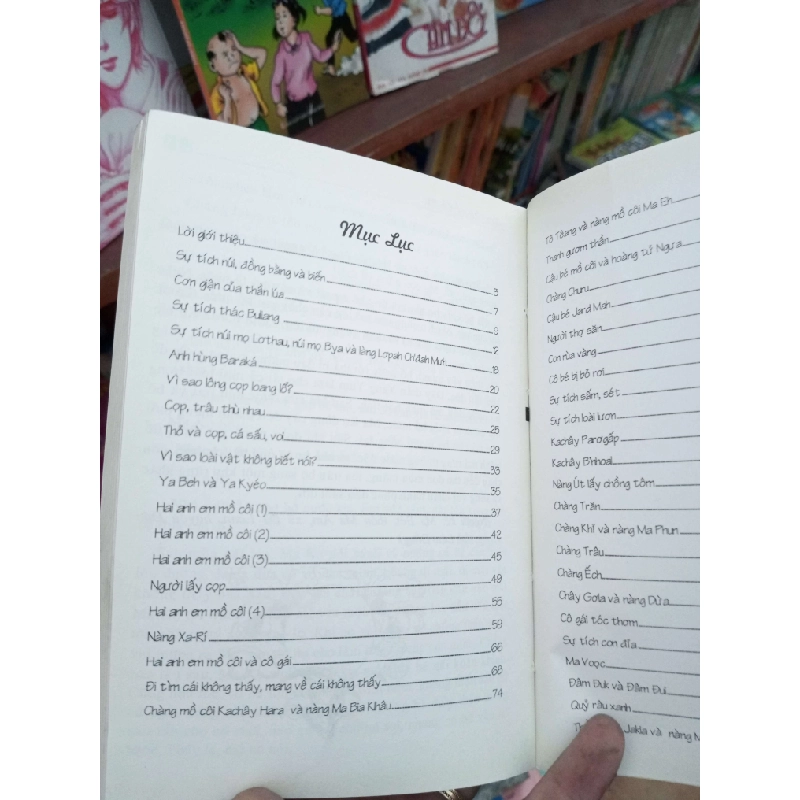 Mục Lục
Lời giới thiệu 3
Sự tích núi, đồng bằng và biển 7
Cơn giận của thần lúa 8
Sự tích thác Bulang
Sự tích núi mọ Lơthau, núi mọ Bya và làng Lopah Ch'dah Mut 18
Anh hùng Baraká 20
Vì sao lông cọp loang lổ? 22
Cọp, trâu thù nhau 25
Thỏ và cọp, cá sấu, voi 29
Vì sao loài vật không biết nói? 33
Ya Beh và Ya Kyéo 35
Hai anh em mồ côi (1) 37
Hai anh em mồ côi (2) 42
Hai anh em mồ côi (3) 45
Người lấy cọp 49
Hai anh em mồ côi (4) 55
Nàng Xa-Rí 59
Hai anh em mồ côi và cô gái 66
Đi tìm cái không thấy, mang về cái không thấy 68
Chàng mồ côi Kachây Hara và nàng Ma Bia Khâu 74
và nàng mồ côi Ma Eh
Thanh gươm thần
Cậu bé mồ côi và hoàng tử Ngựa
Chàng Churu
Cậu bé
Người thợ săn
Con rùa vàng
bé bị bỏ rơi
Sự tích sấm, sét
Sự tích loài lươn
Kachây Parơgấp
Kachây B'nhoal
Nàng Út lấy chồng tôm
Chàng Trăn
Chàng Khỉ và nàng Ma Phun
Chàng Trâu
Chàng Ếch
Chây Gola và nàng Dừa
Cô gái tóc thơm
Sự tích con đỉa
Ma Voọc
Đăm Đuk và Đăm Đui
Quỷ râu xanh
Jakla và nàng